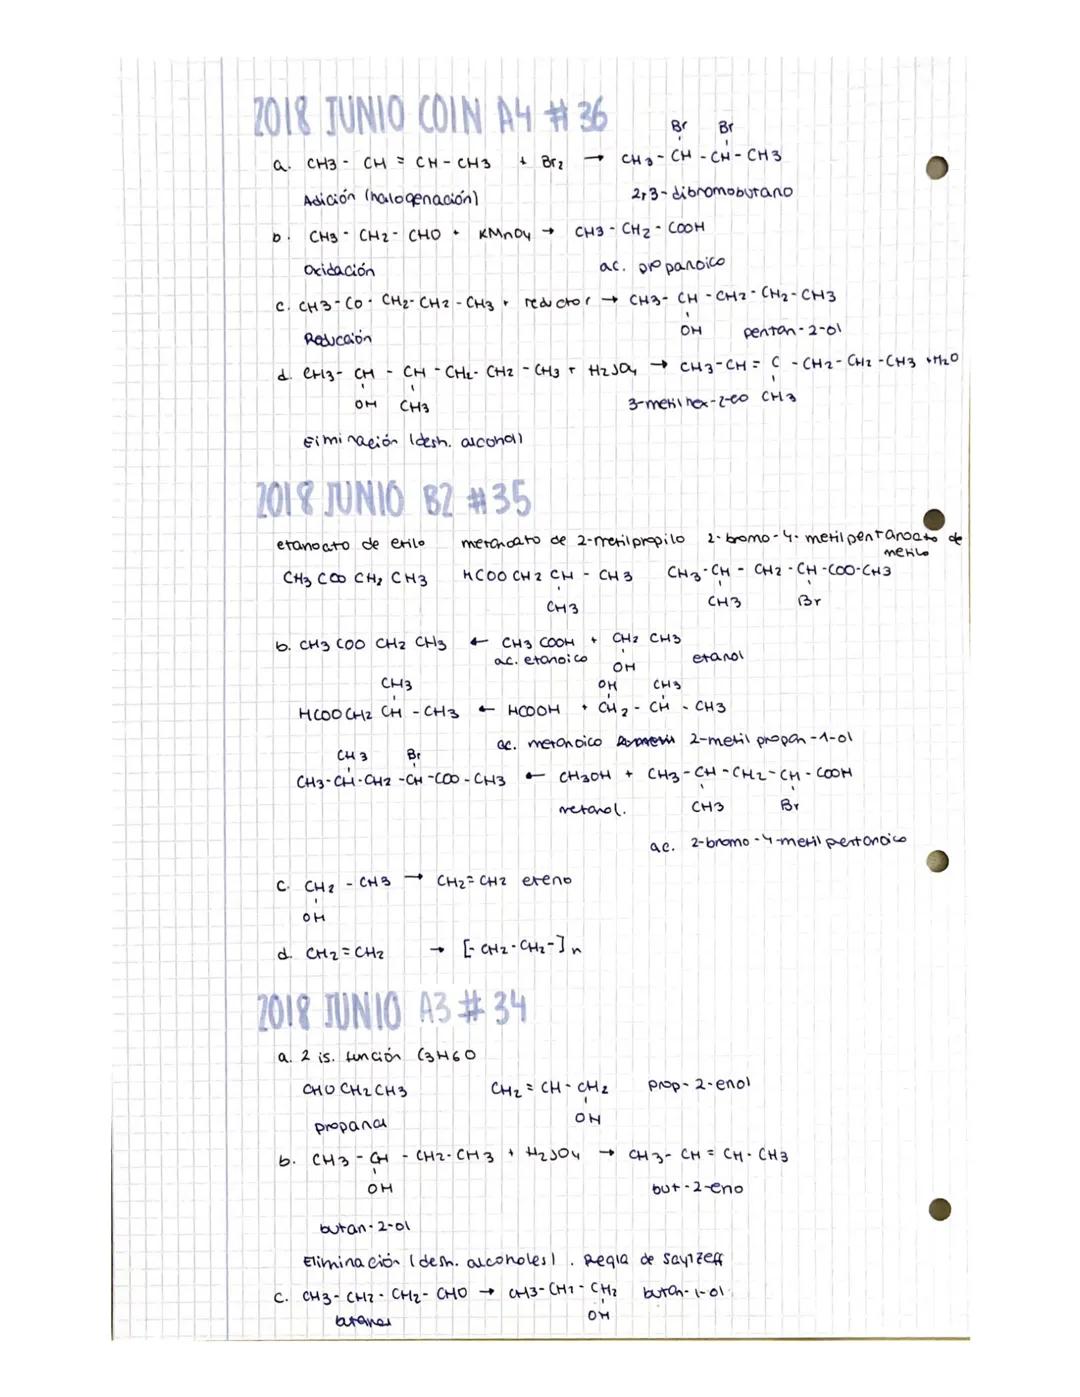 2018 JUNIO COIN A4 #36
Br Br
a. CH3 - CH = CH - CH3 + Br2 → CH3 - CH - CH - CH3
Adición (halogenación) 2,3-dibromobutano
b. CH3 - CH2 - CHO + KMnO4 → CH3 - CH2 - COOH
Oxidación ac. propanoico
c. CH3 - CO - CH2 - CH2 - CH3 + reductor → CH3 - CH - CH2 - CH2 - CH3
Reducción OH pentan-2-ol
d. CH3 - CH - CH - CH2 - CH2 - CH3 + H2SO4 → CH3 - CH = C - CH2 - CH2 - CH3 + H2O
OH CH3 3-metilhex-2-eo CH3
Eliminación (desh. alcohol)
2018 JUNIO B2 #35
etanoato de etilo metanoato de 2-metilpropilo 2-bromo-4-metilpentanoato de
metilo
CH3 COO CH2 CH3 HCOO CH2 CH - CH3 CH3 - CH - CH2 - CH - COO - CH3
CH3 CH3 Br
b. CH3 COO CH2 CH3 ← CH3 COOH + CH2 CH3
ac. etanoico OH etanol
CH3 OH CH3
HCOO CH2 CH - CH3 ← HCOOH + CH2 - CH - CH3
ac. metanoico 2-metil propan-1-ol
CH3 Br
CH3 - CH - CH2 - CH - COO - CH3 ← CH3OH + CH3 - CH - CH2 - CH - COOH
metanol. CH3 Br
ac. 2-bromo-4-metil pentanoico
c. CH2 - CH3 → CH2 = CH2 eteno
OH
d. CH2 = CH2 → [- CH2 - CH2 -]n
2018 JUNIO A3 #34
a. 2 is. función C3H6O
CHO CH2 CH3 CH2 = CH - CH2 prop-2-enol
propanal OH
b. CH3 - CH - CH2 - CH3 + H2SO4 → CH3 - CH = CH - CH3
OH but-2-eno
butan-2-ol
Eliminación (desh. alcoholes). Regla de Saytzeff
c. CH3 - CH2 - CH2 - CHO → CH3 - CH2 - CH2 butan-1-ol.
butanal OH